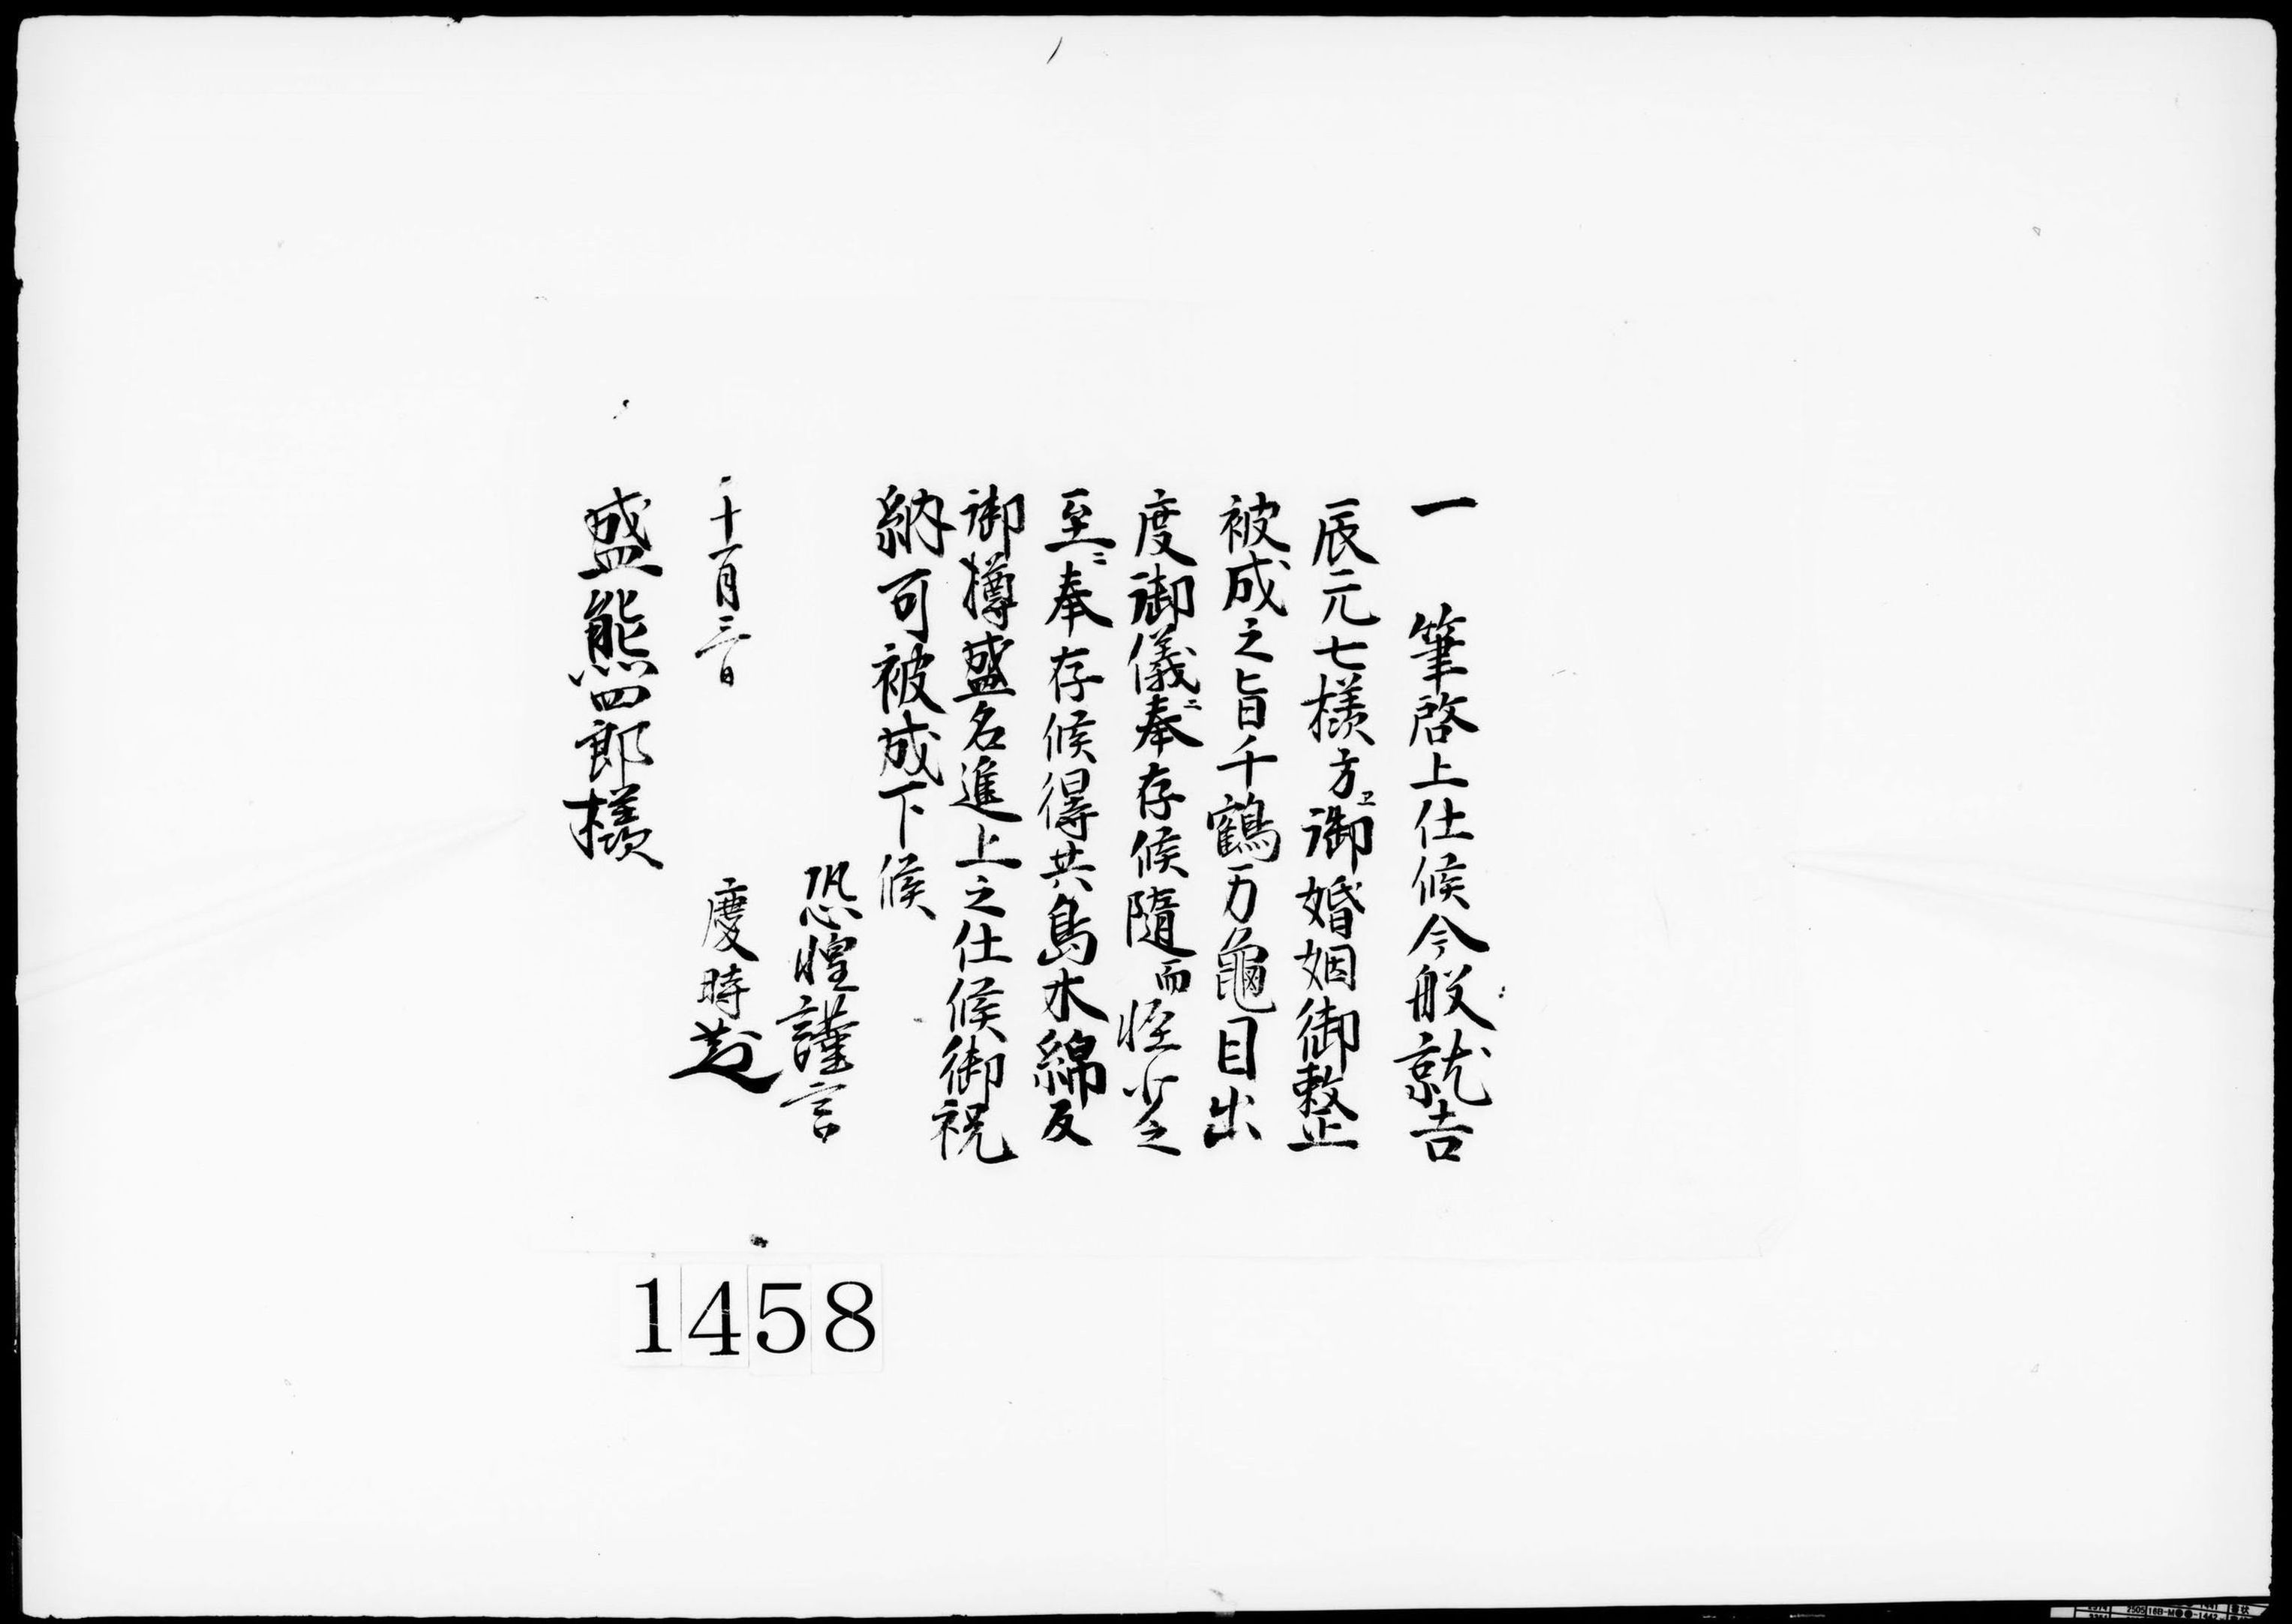 一筆啓上仕候今般就吉
辰元七様方ヱ御婚姻御整
被成之旨千鶴万亀目出
度御儀ニ奉存候随而軽少之
至ニ奉存候得共島木綿反
御樽盛名進上之仕候御祝
納可被成下候
恐惶謹言
十一月三日
慶時
盛熊四郎様
1458